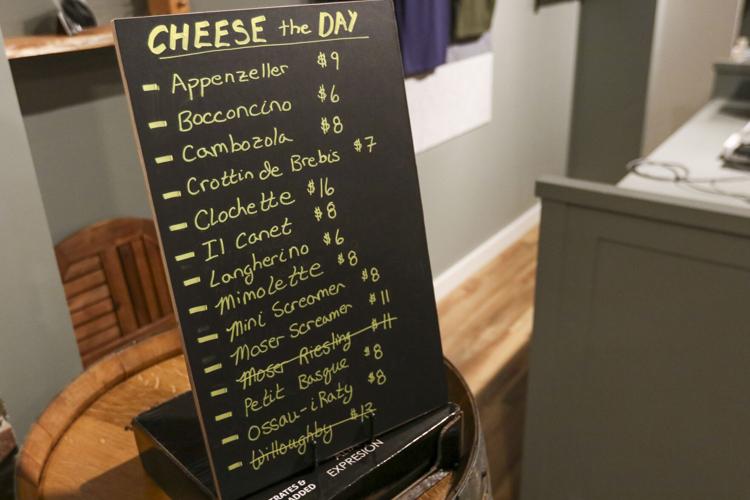 CHEESE the DAY
- Appenzeller $9
- Bocconcino $6
- Cambozola $8
- Crottin de Brebis $7
- Clochette $16
- Il Canet $8
- Langherino $6
- Mimolette $8
- Mini Screamer $8
- Moser Screamer $11
- Moser Riesling $11
- Petit Basque $8
- Ossau-iRaty $8
- Willoughby $12
EXPRESION